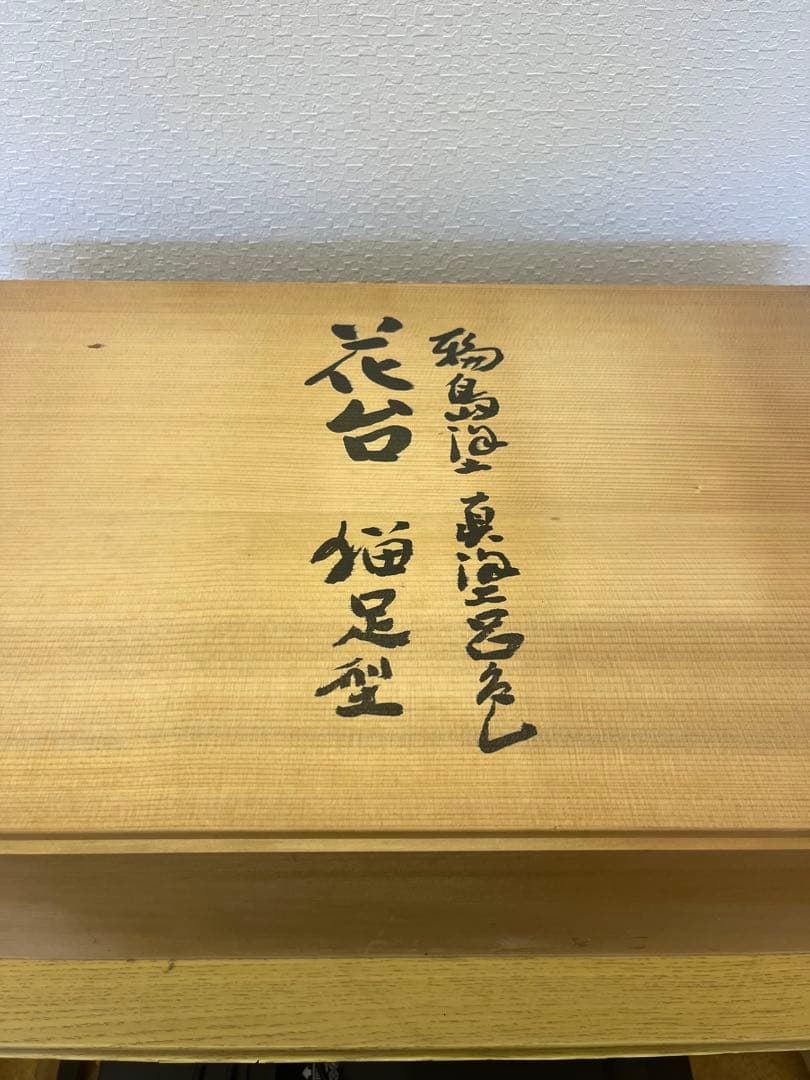 輪島塗 真塗呂色
花台 猫足型